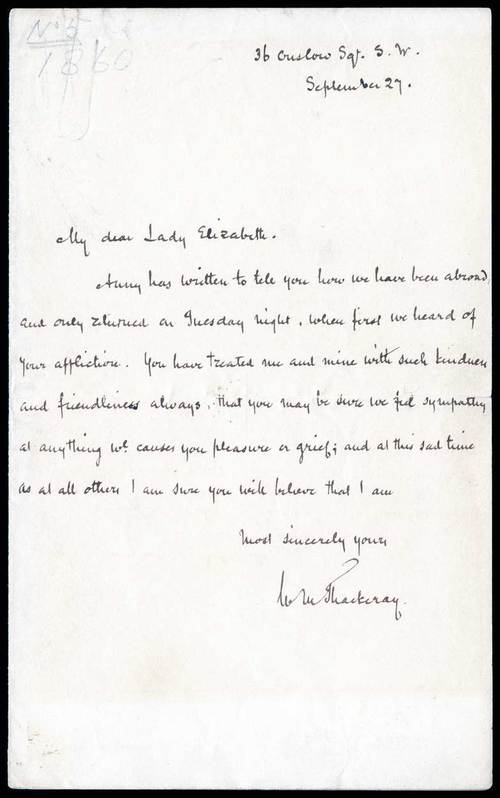 No 5
1860
36 Onslow Sqr. S. W.
September 27.
My dear Lady Elizabeth.
Anny has written to tell you how we have been abroad,
and only returned on Tuesday night, when first we heard of
your affliction. You have treated me and mine with such kindness
and friendliness always, that you may be sure we feel sympathy
at anything wh. causes you pleasure or grief; and at this sad time
as at all others I am sure you will believe that I am
Most sincerely yours
W M Thackeray.